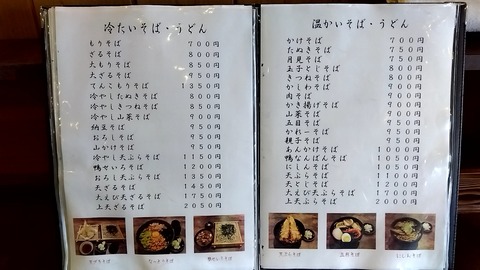 冷たいそば・うどん
もりそば 700円
ざるそば 800円
大もりそば 850円
大ざるそば 950円
てんこもりそば 1350円
冷やしたぬきそば 800円
冷やしきつねそば 850円
冷やし山菜そば 900円
納豆そば 900円
おろしそば 950円
山かけそば 950円
冷やし天ぷらそば 1150円
鴨せいろそば 1200円
おろし天ぷらそば 1350円
天ざるそば 1450円
大えび天ざるそば 1750円
上天ざるそば 2050円
温かいそば・うどん
かけそば 700円
たぬきそば 750円
月見そば 750円
玉子とじそば 800円
きつねそば 800円
かしわそば 900円
肉そば 900円
かき揚げそば 900円
山菜そば 900円
五目そば 950円
かれーそば 950円
親子そば 950円
あんかけそば 1000円
鴨なんばんそば 1050円
にしんそば 1050円
天ぷらそば 1100円
天とじそば 1200円
大えび天ぷらそば 1700円
上天ぷらそば 2000円
にしんそば